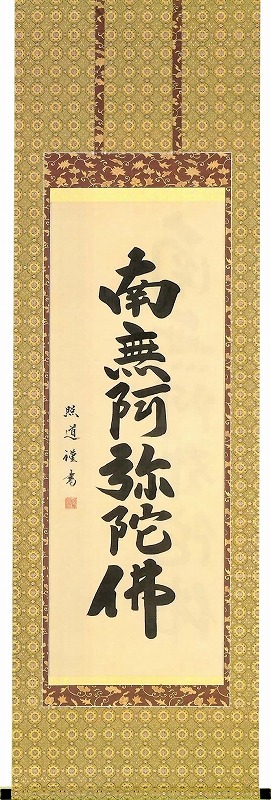 南無阿弥陀佛
照道謹書